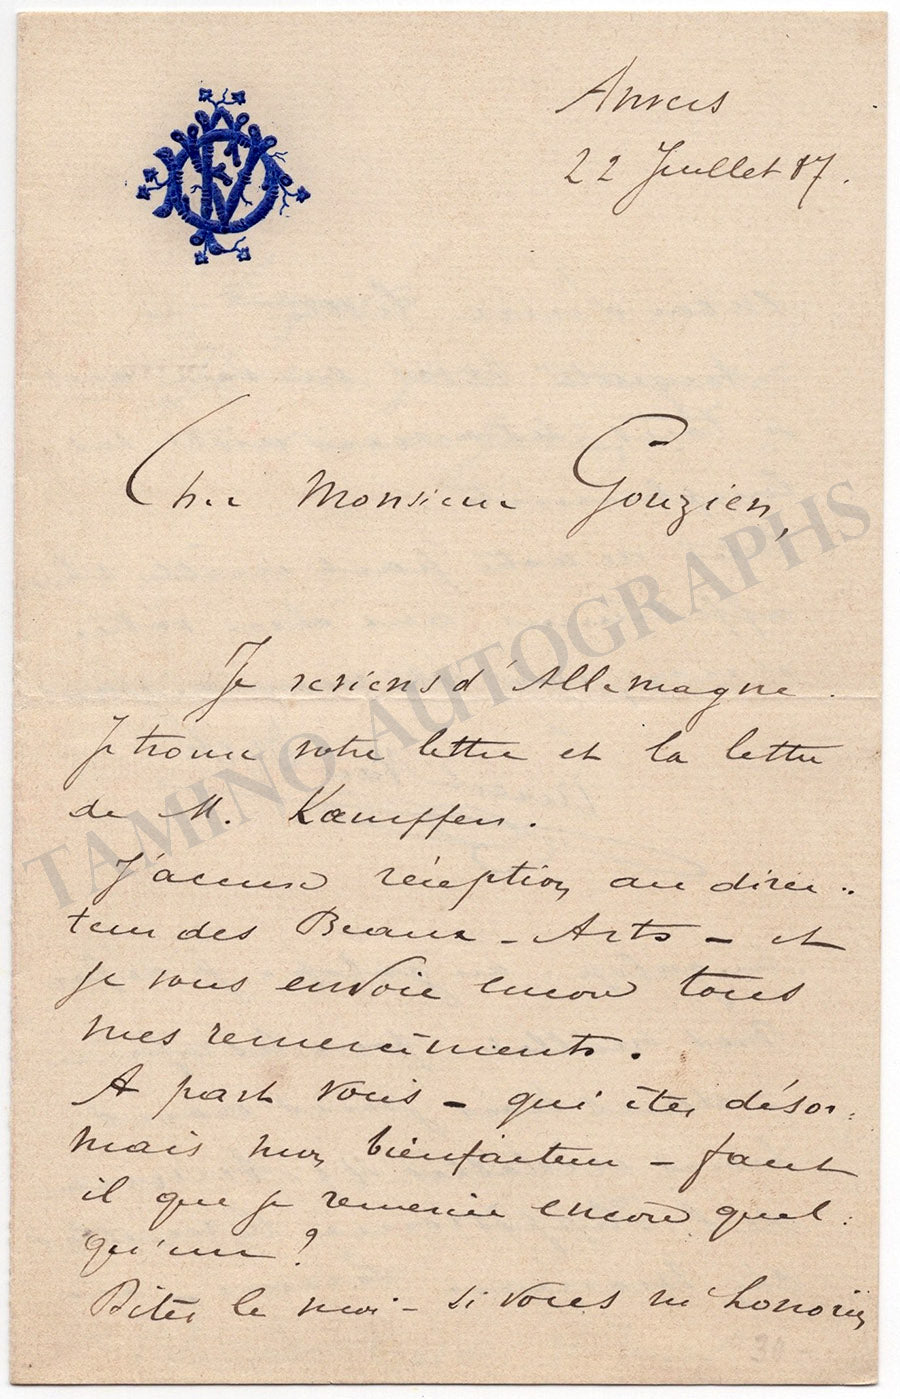 Anvers
22 Juillet 87.
Cher Monsieur Gouzien,
Je reviens d'Allemagne.
Je trouve votre lettre et la lettre
de M. Kaempfen.
J'accuse réception au direc..
teur des Beaux-Arts - et
je vous envoie encore tous
mes remerciments.
A part vous - qui êtes désor:
mais mon bienfaiteur - faut
il que je remercie encore quel:
qu'un ?
Dites le moi - si vous m'honoriez
30 -
TAMINO AUTOGRAPHS